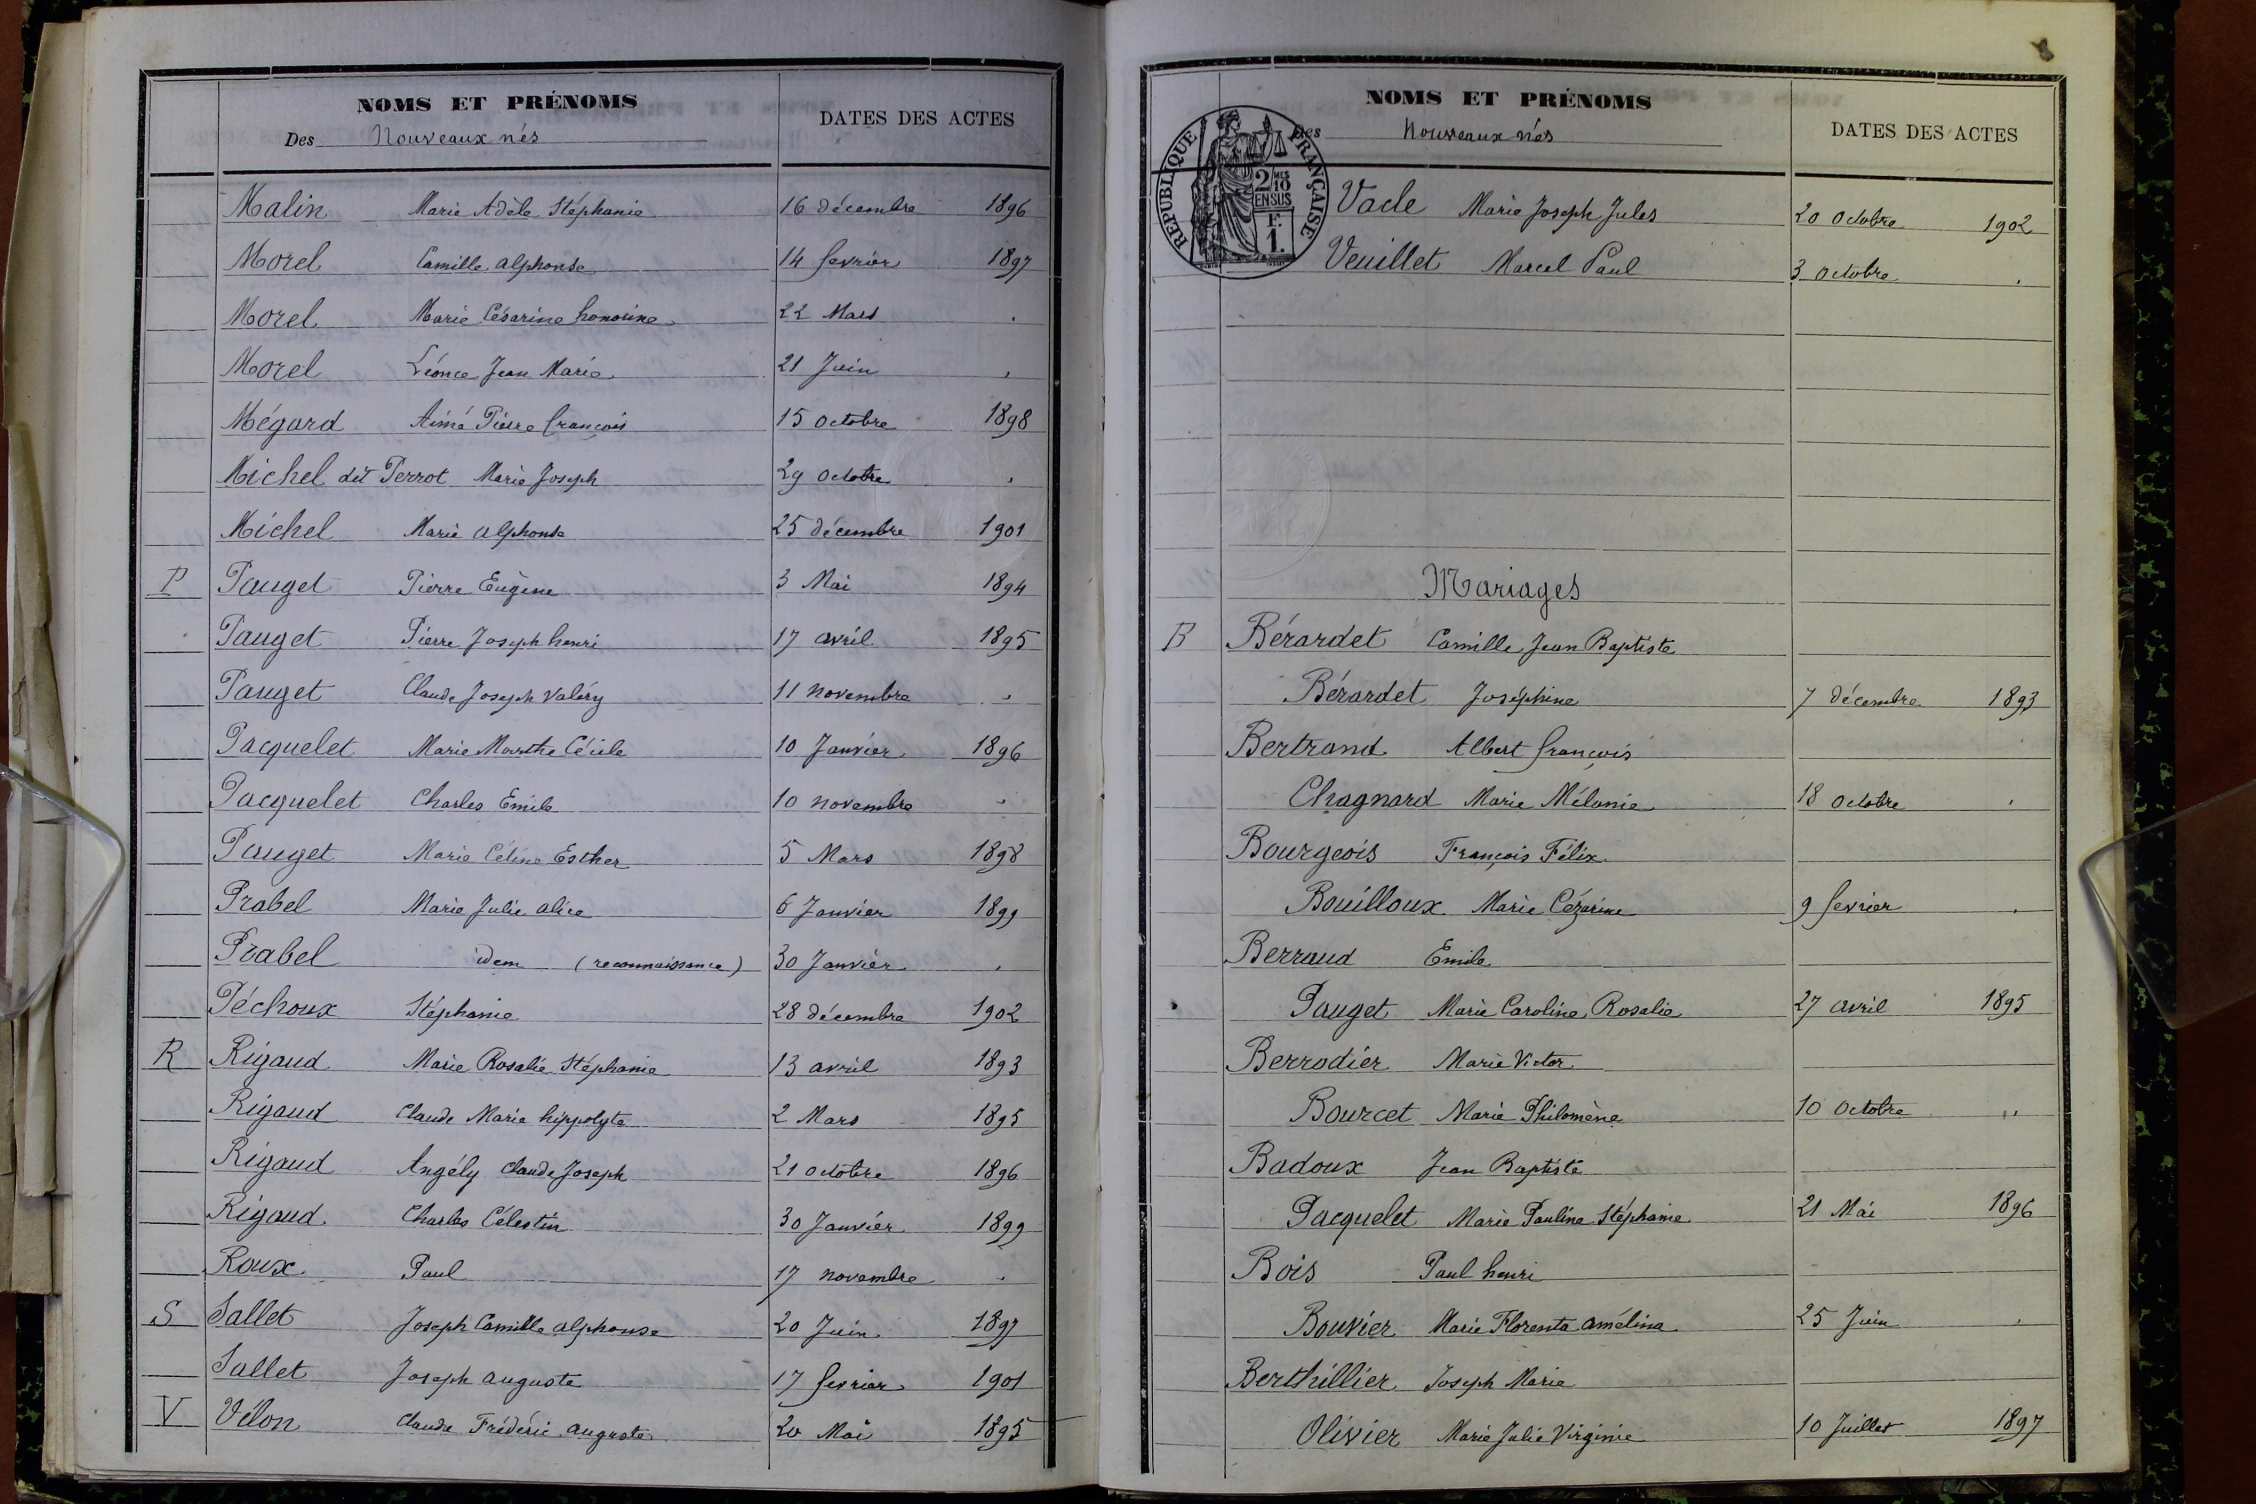 NOMS ET PRÉNOMS
DATES DES ACTES
Des Nouveaux nés
Malin Marie Adèle Stéphanie 16 décembre 1896
Morel Camille alphonse 14 fevrier 1897
Morel Marie Césarine honorine 22 Mars .
Morel Léonce Jean Marie 21 Juin .
Mégard Aimé Pierre françois 15 octobre 1898
Michel dit Perrot Marie Joseph 29 octobre .
Michel Marie alphonse 25 décembre 1901
P Pauget Pierre Eugène 3 Mai 1894
Pauget Pierre Joseph henri 17 avril 1895
Pauget Claude Joseph Valéry 11 novembre .
Pacquelet Marie Marthe Cécile 10 Janvier 1896
Pacquelet Charles Emile 10 novembre .
Pauget Marie Céline Esther 5 Mars 1898
Prabel Marie Julie alice 6 Janvier 1899
Prabel idem (reconnaissance) 30 Janvier .
Péchoux Stéphanie 28 décembre 1902
R Rigaud Marie Rosalie Stéphanie 13 avril 1893
Rigaud Claude Marie hippolyte 2 Mars 1895
Rigaud Angély Claude Joseph 21 octobre 1896
Rigaud Charles Célestin 30 Janvier 1899
Roux Paul 17 novembre .
S Sallet Joseph Camille alphonse 20 Juin 1897
Sallet Joseph auguste 17 fevrier 1901
V Vélon Claude Frédéric auguste 20 Mai 1895
NOMS ET PRÉNOMS
DATES DES ACTES
Des Nouveaux nés
RÉPUBLIQUE FRANÇAISE
2 MES 10
EN SUS
F.
1.
Vacle Marie Joseph Jules 20 octobre 1902
Veuillet Marcel Paul 3 octobre .
Mariages
B Bérardet Camille Jean Baptiste
Bérardet Joséphine 7 décembre 1893
Bertrand Albert françois
Chagnard Marie Mélanie 18 octobre .
Bourgeois François Félix
Bouilloux Marie Cézarine 9 fevrier .
Berraud Emile
Pauget Marie Caroline Rosalie 27 avril 1895
Berrodier Marie Victor
Bourcet Marie Philomène 10 octobre ..
Badoux Jean Baptiste
Pacquelet Marie Pauline Stéphanie 21 Mai 1896
Bois Paul henri
Bouvier Marie Florenta amélina 25 Juin .
Berthillier Joseph Marie
Olivier Marie Julie Virginie 10 Juillet 1897